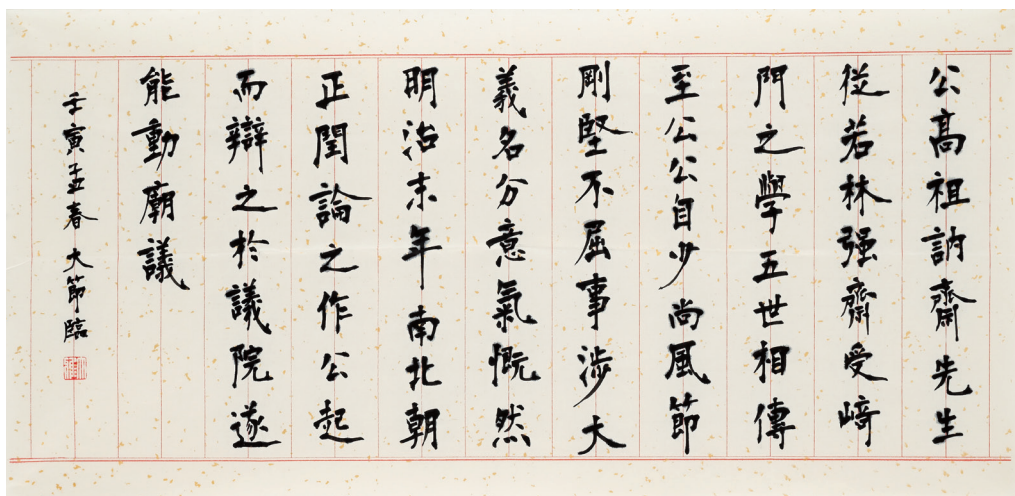 公高祖訥齋先生
從若林强齋受﨑
門之學五世相傳
至公公自少尚風節
剛堅不屈事涉大
義名分意氣慨然
明治末年南北朝
正閏論之作公起
而辯之於議院遂
能動廟議
壬寅孟春 大節臨